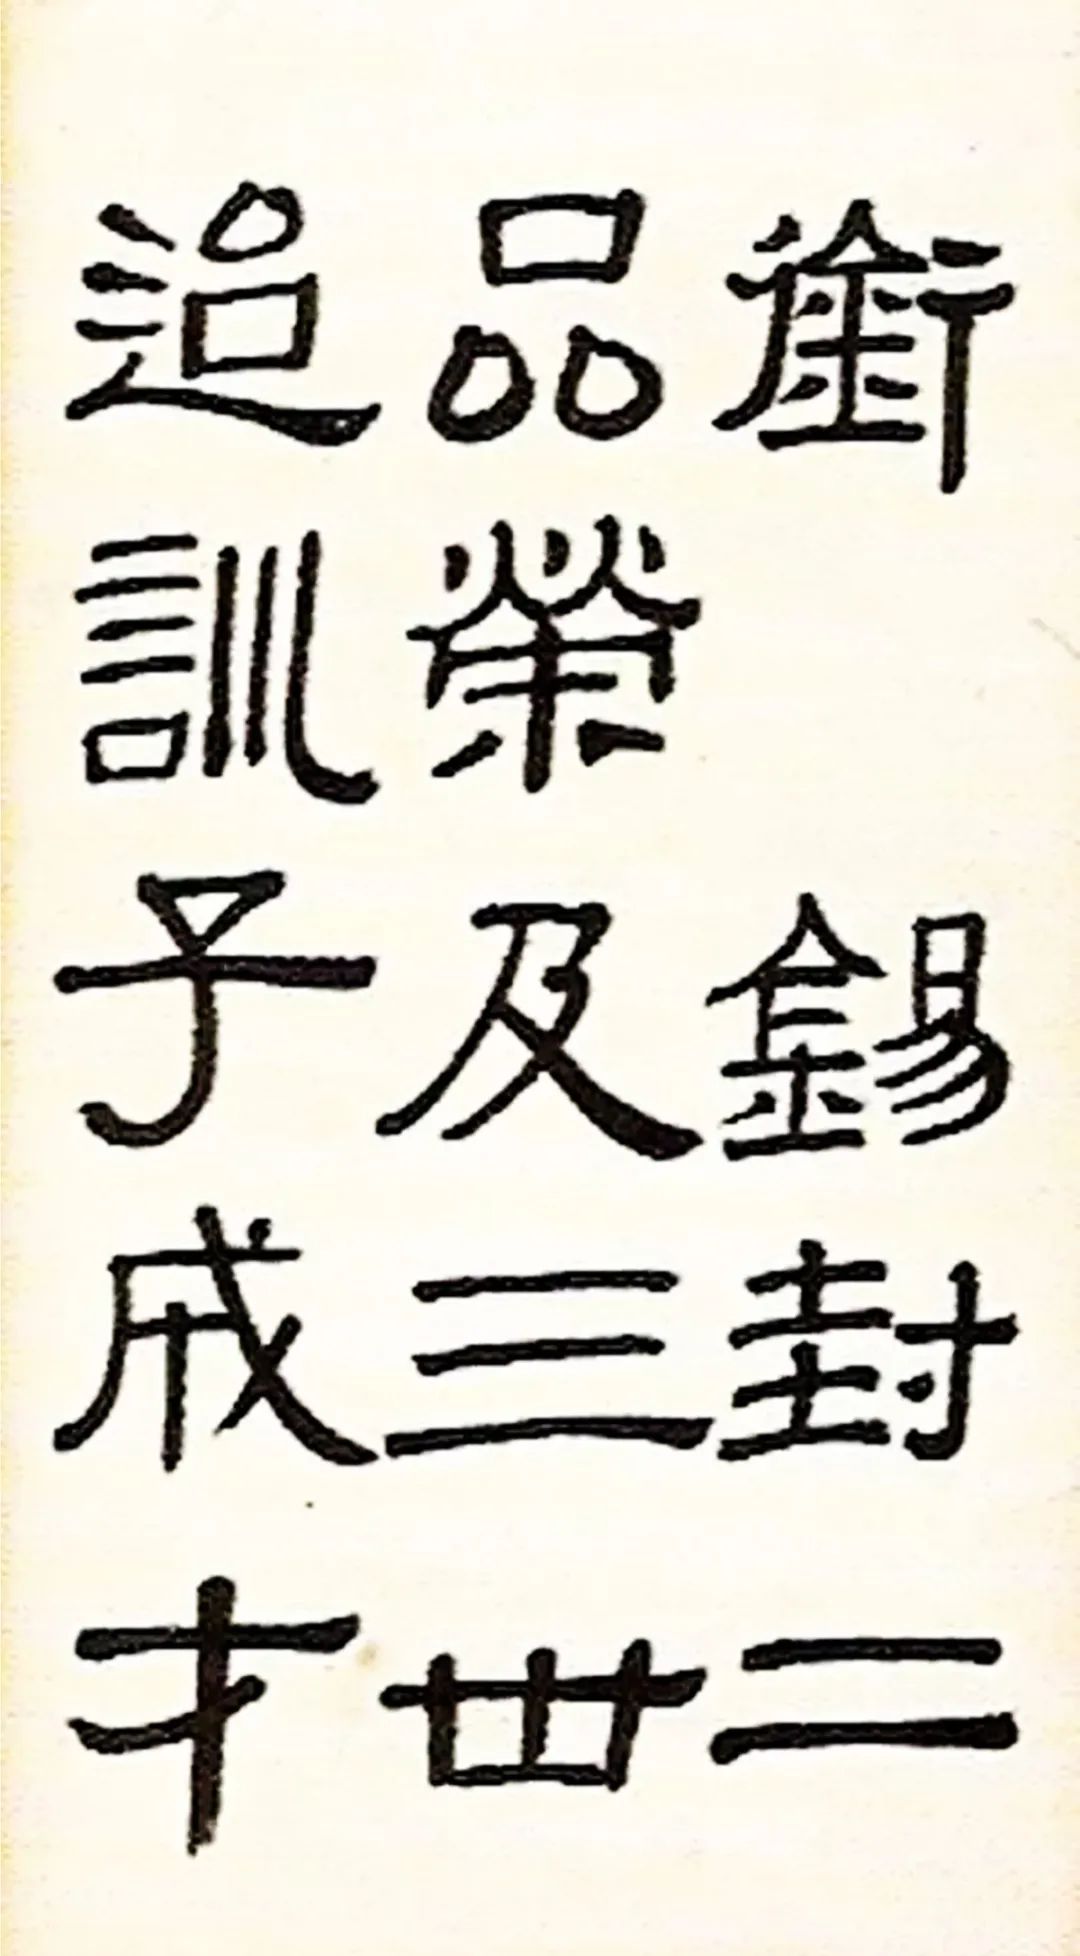 銜　錫封二
品榮及三世
迨訓子成才